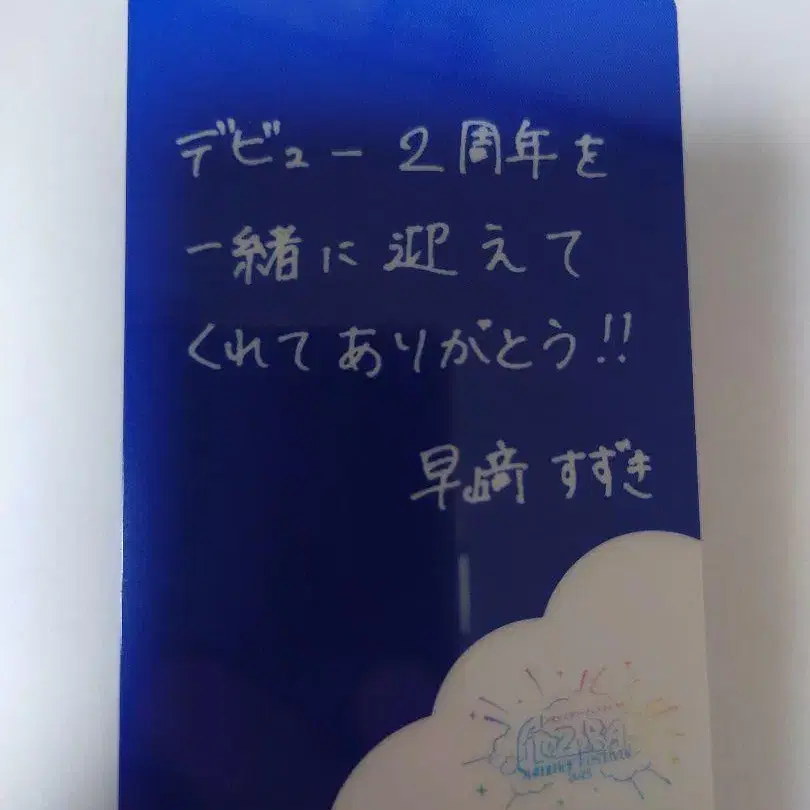 デビュー2周年を
一緒に迎えて
くれてありがとう!!
早﨑すずき